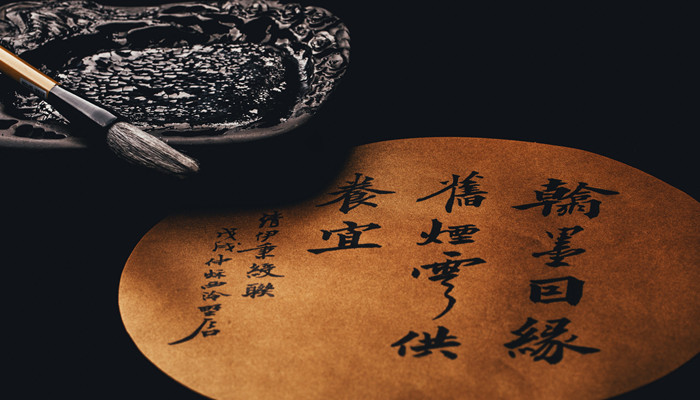 翰墨囙緣
舊煙雲供
養宜
清伊秉綬聯
戊戌仲西泠